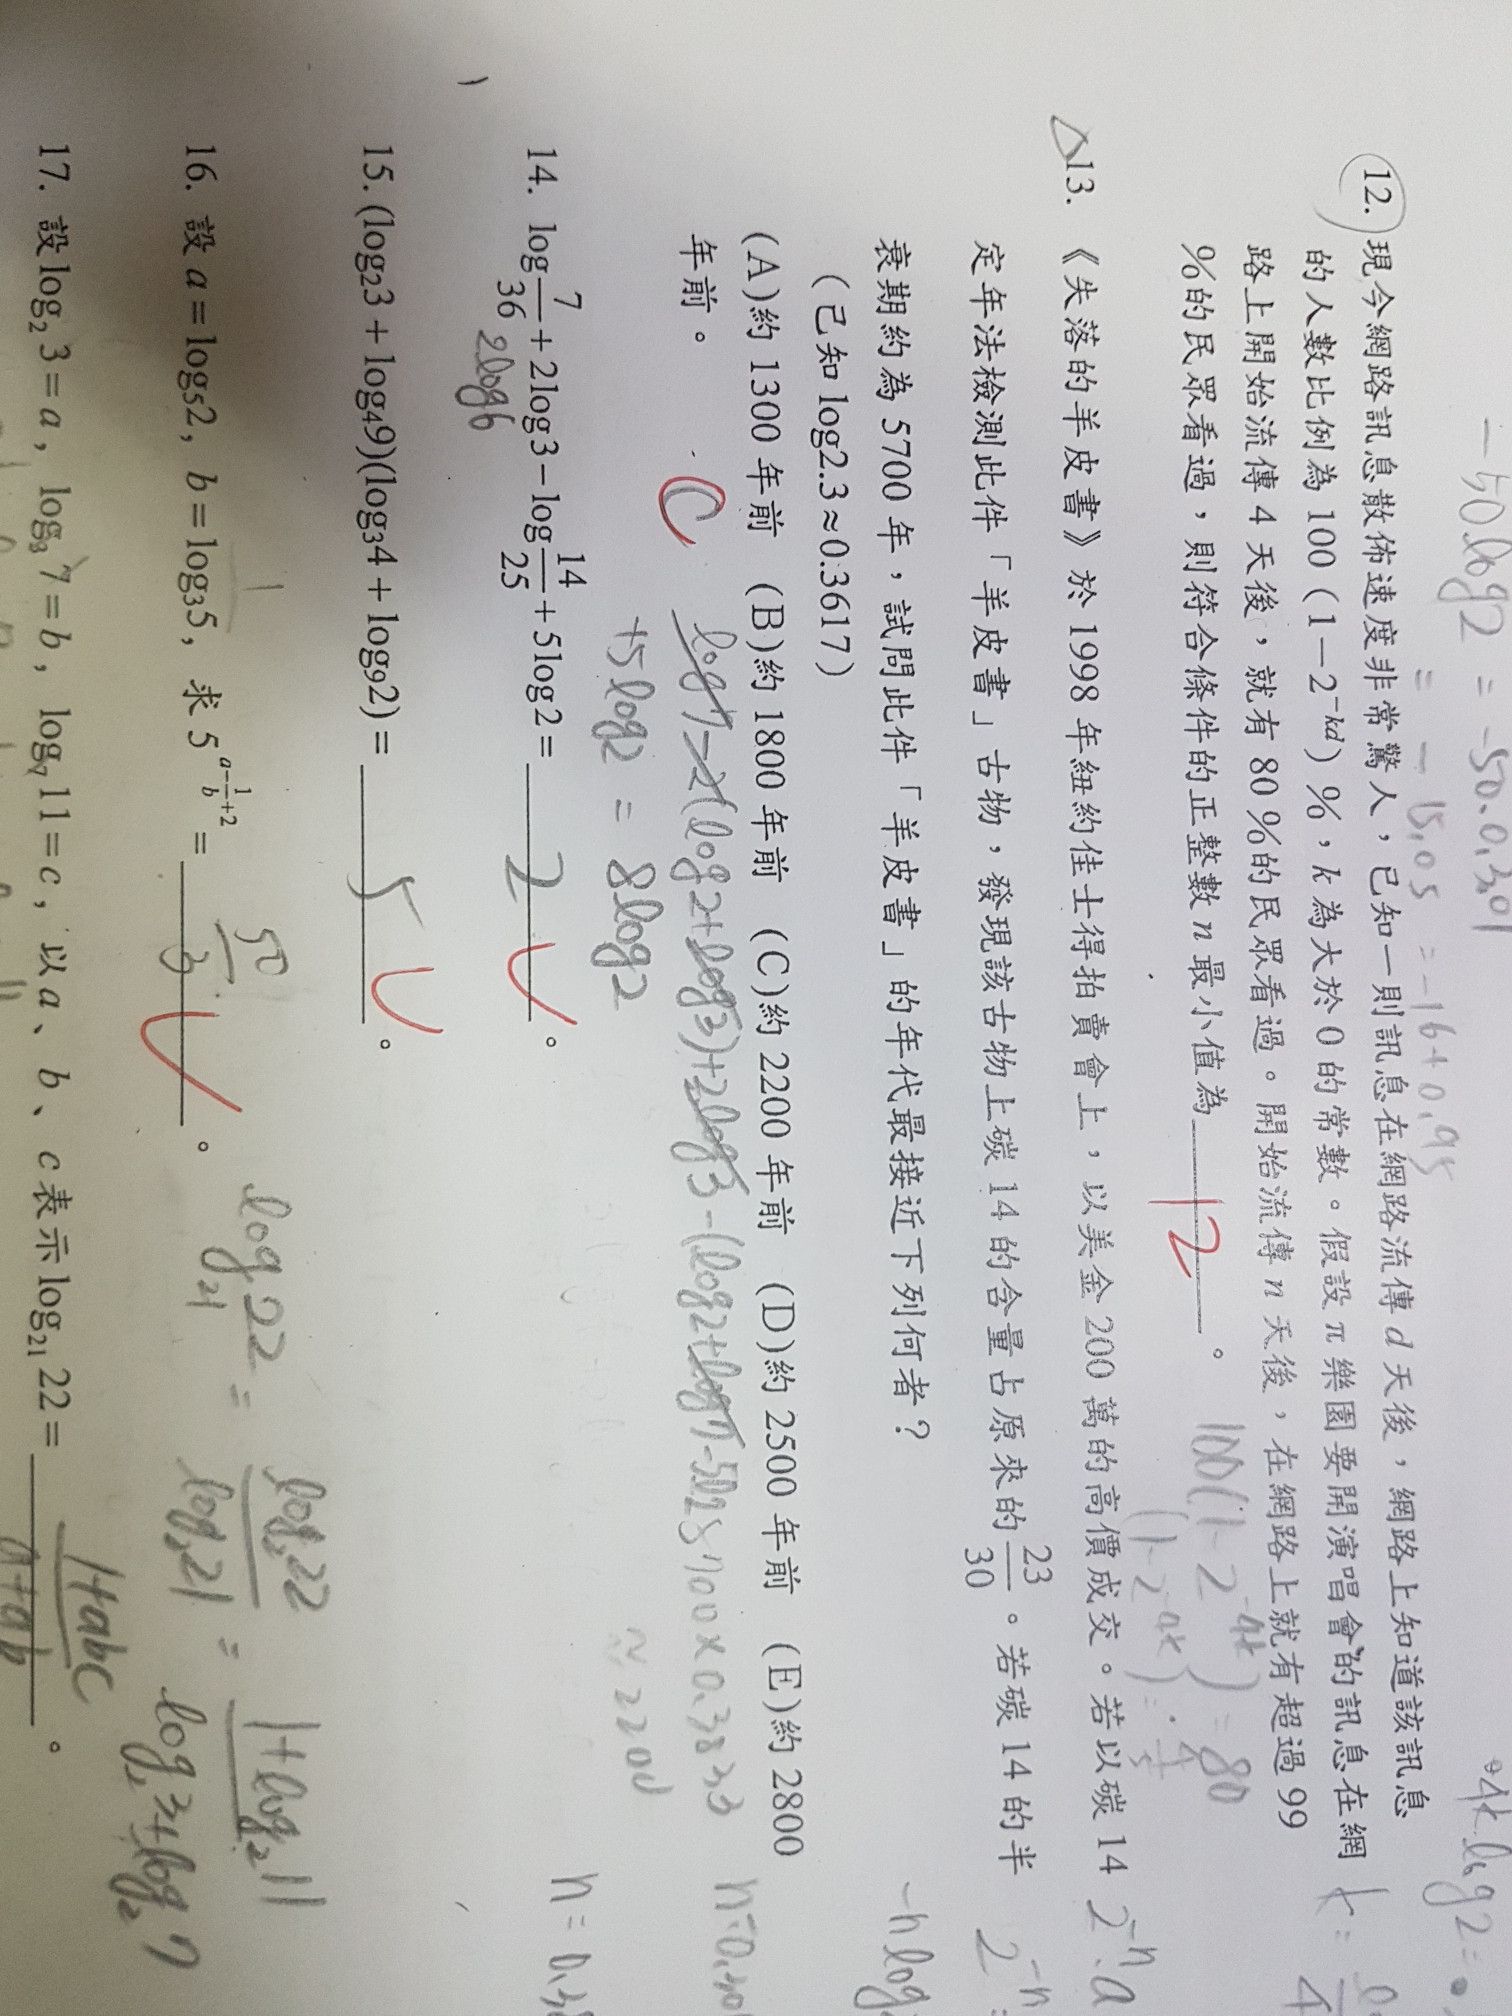 -50log2 = -50·0.301
= -15.05 = -16+0.95
12. 現今網路訊息散佈速度非常驚人，已知一則訊息在網路流傳 d 天後，網路上知道該訊息
的人數比例為 100（1－2^{-kd}）%，k 為大於 0 的常數。假設 π 樂園要開演唱會的訊息在網
路上開始流傳 4 天後，就有 80 %的民眾看過。開始流傳 n 天後，在網路上就有超過 99
%的民眾看過，則符合條件的正整數 n 最小值為 12 。
100(1-2^{-4k}) = 80
(1-2^{-4k}) = 4/5
△13. 《失落的羊皮書》於 1998 年紐約佳士得拍賣會上，以美金 200 萬的高價成交。若以碳 14
定年法檢測此件「羊皮書」古物，發現該古物上碳 14 的含量占原來的 23/30。若碳 14 的半
衰期約為 5700 年，試問此件「羊皮書」的年代最接近下列何者？
（已知 log2.3≈0.3617）
(A)約 1300 年前 (B)約 1800 年前 (C)約 2200 年前 (D)約 2500 年前 (E)約 2800
年前。
C
2^{-n}·a
5700×0.3833
≈2200
14. log 7/36 + 2log3 － log 14/25 + 5log2 = 2 。
2log6
+5log2 = 8log2
15. (log₂3 + log₄9)(log₃4 + log₉2) = 5 。
16. 設 a = log₅2, b = log₃5, 求 5^{a－1/b+2} = 50/3 。
log₂₁22 = log₂22/log₂21 = 1+log₂11/log₂3+log₂7
17. 設 log₂ 3 = a, log₃ 7 = b, log₇ 11 = c, 以 a、b、c 表示 log₂₁ 22 = 1+abc/a+ab 。